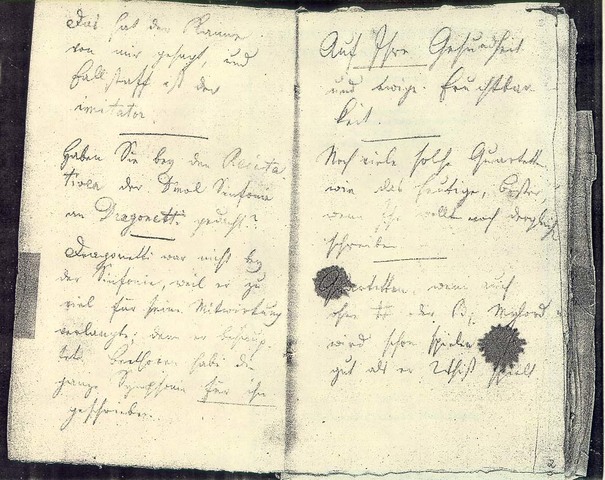 Das hat der Planer
von mir gesagt, und
Fallstaff ist der
imitator.
Haben Sie bey den Recita
tiven der D mol Sinfonie
an Dragonetti gedacht?
Dragonetti war nicht bey
der Sinfonie, weil er zu
viel für seine Mitwirkung
verlangte; denn er behaup-
tet Beethoven habe die
ganze Symphonie für ihn
geschrieben.
Auf Ihre Gesundheit
und ewige Fruchtbar
keit.
Noch viele solche Quartetten
wie das heutige, bester,
wenn Sie wollt noch dergleichen
schreiben
Quartetten, wenn auch
ohne # oder B, Mylord
wird schon spielen
gut als er Whist spielt
2